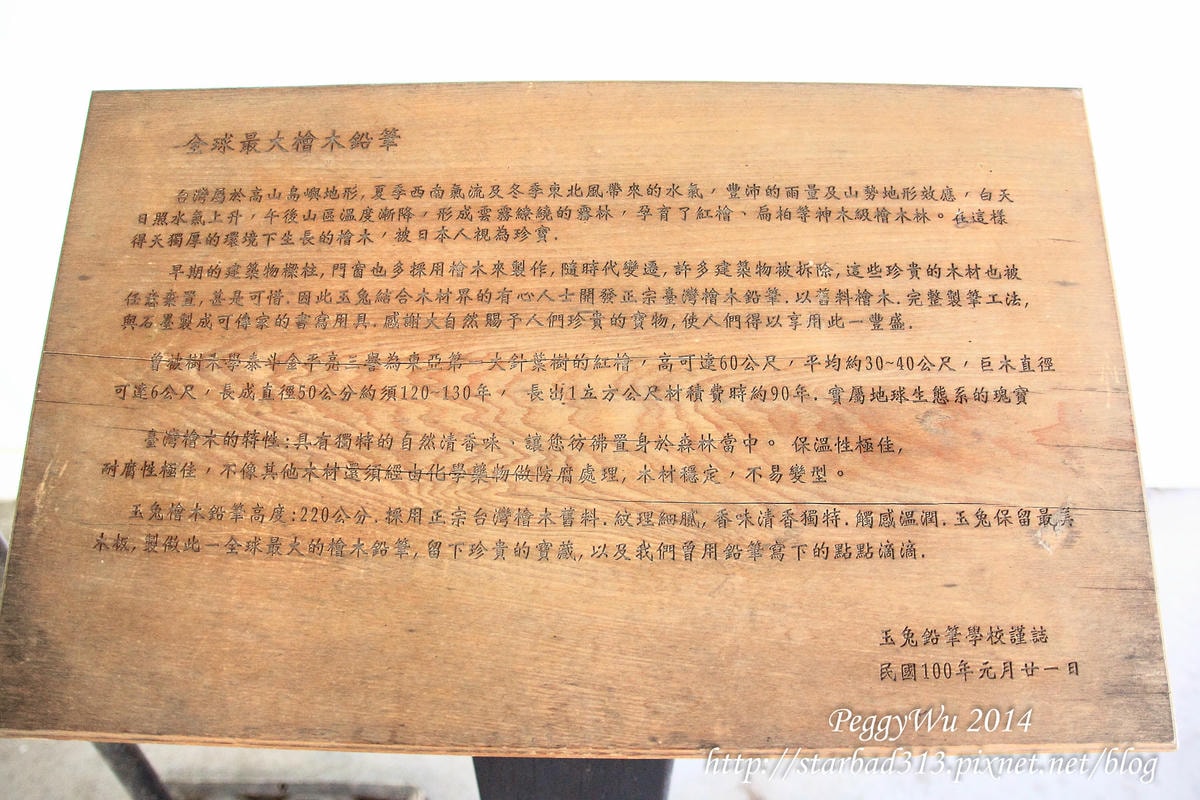 全球最大檜木鉛筆
台灣屬於高山島嶼地形,夏季西南氣流及冬季東北風帶來的水氣,豐沛的雨量及山勢地形效應,白天
日照水氣上升,午後山區溫度漸降,形成雲霧繚繞的霧林,孕育了紅檜、扁柏等神木級檜木林。在這樣
得天獨厚的環境下生長的檜木,被日本人視為珍寶.
早期的建築物樑柱,門窗也多採用檜木來製作,隨時代變遷,許多建築物被拆除,這些珍貴的木材也被
任意棄置,甚是可惜.因此玉兔結合木材界的有心人士開發正宗臺灣檜木鉛筆.以舊料檜木.完整製筆工法,
與石墨製成可傳家的書寫用具.感謝大自然賜予人們珍貴的寶物,使人們得以享用此一豐盛.
曾被樹木學泰斗金平亮三譽為東亞第一大針葉樹的紅檜,高可達60公尺,平均約30~40公尺,巨木直徑
可達6公尺,長成直徑50公分約須120~130年, 長出1立方公尺材積費時約90年.實屬地球生態系的瑰寶
臺灣檜木的特性:具有獨特的自然清香味、讓您彷彿置身於森林當中。 保溫性極佳,
耐腐性極佳,不像其他木材還須經由化學藥物做防腐處理,木材穩定,不易變型。
玉兔檜木鉛筆高度:220公分.採用正宗台灣檜木舊料.紋理細膩,香味清香獨特.觸感溫潤.玉兔保留最美
木板,製做此一全球最大的檜木鉛筆,留下珍貴的寶藏,以及我們曾用鉛筆寫下的點點滴滴.
玉兔鉛筆學校謹誌
民國100年元月廿一日
PeggyWu 2014
http://starbad313.pixnet.net/blog